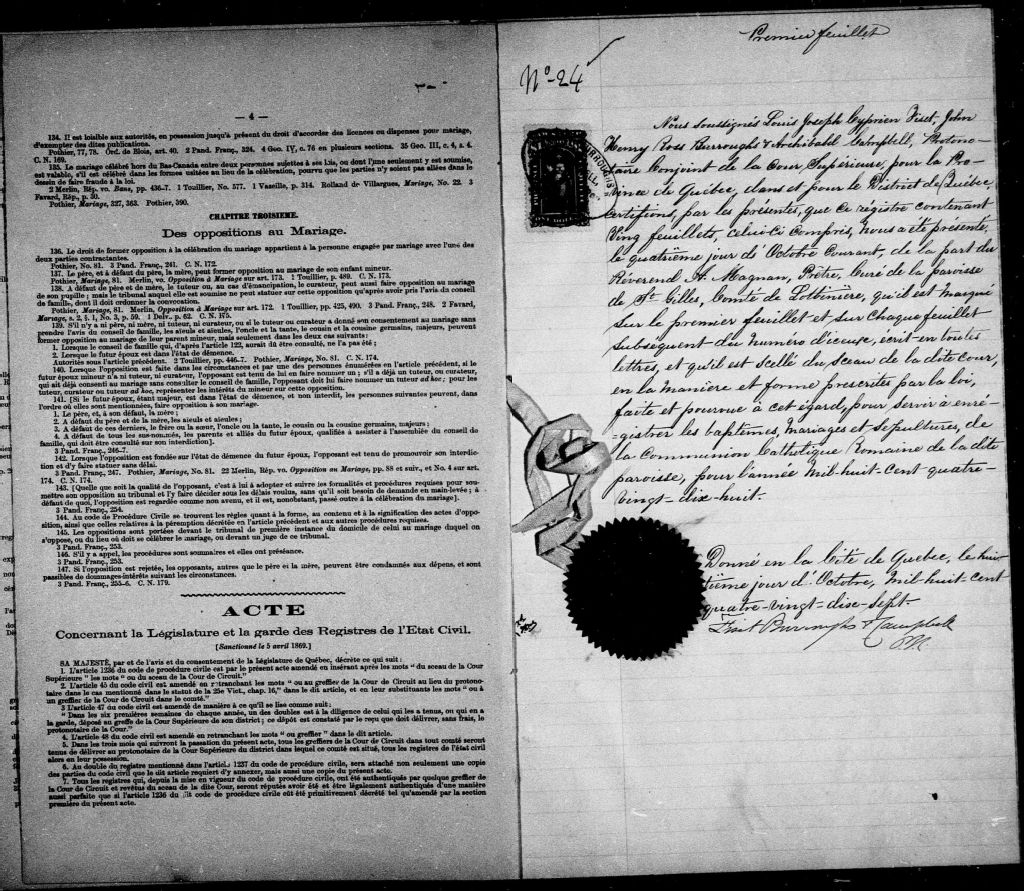 — 4 —
134. Il est loisible aux autorités, en possession jusqu'à présent du droit d'accorder des licences ou dispenses pour mariage,
d'exempter des dites publications.
Pothier, 77, 78. Ord. de Blois, art. 40. 2 Pand. Franç., 324. 4 Geo. IV, c. 76 en plusieurs sections. 35 Geo. III, c. 4, s. 4.
C. N. 169.
135. Le mariage célébré hors du Bas-Canada entre deux personnes sujettes à ses lois, ou dont l'une seulement y est soumise,
est valable, s'il est célébré dans les formes usitées au lieu de la célébration, pourvu que les parties n'y soient pas allées dans le
dessein de faire fraude à la loi.
2 Merlin, Rép. vo. Bans, pp. 436-7. 1 Touillier, No. 577. 1 Vaseille, p. 314. Rolland de Villargues, Mariage, No. 22. 3
Favard, Rép., p. 30.
Pothier, Mariage, 327, 363. Pothier, 390.
CHAPITRE TROISIEME.
Des oppositions au Mariage.
136. Le droit de former opposition à la célébration du mariage appartient à la personne engagée par mariage avec l'une des
deux parties contractantes.
Pothier, No. 81. 3 Pand. Franç., 241. C. N. 172.
137. Le père, et à défaut du père, la mère, peut former opposition au mariage de son enfant mineur.
Pothier, Mariage, 81. Merlin, vo. Opposition à Mariage sur art. 173. 1 Touillier, p. 489. C. N. 173.
138. A défaut de père et de mère, le tuteur ou, au cas d'émancipation, le curateur, peut aussi faire opposition au mariage
de son pupille; mais le tribunal auquel elle est soumise ne peut statuer sur cette opposition qu'après avoir pris l'avis du conseil
de famille, dont il doit ordonner la convocation.
Pothier, Mariage, 81. Merlin, Opposition à Mariage sur art. 172. 1 Touillier, pp. 425, 490. 3 Pand. Franç., 248. 2 Favard,
Mariage, s. 2, § 1, No. 3, p. 59. 1 Delv., p. 62. C. N. 175.
139. S'il n'y a ni père, ni mère, ni tuteur, ni curateur, ou si le tuteur ou curateur a donné son consentement au mariage sans
prendre l'avis du conseil de famille, les aïeuls et aïeules, l'oncle et la tante, le cousin et la cousine germains, majeurs, peuvent
former opposition au mariage de leur parent mineur, mais seulement dans les deux cas suivants:
1. Lorsque le conseil de famille qui, d'après l'article 122, aurait dû être consulté, ne l'a pas été;
2. Lorsque le futur époux est dans l'état de démence.
Autorités sous l'article précédent. 2 Touillier, pp. 446-7. Pothier, Mariage, No. 81. C. N. 174.
140. Lorsque l'opposition est faite dans les circonstances et par une des personnes énumérées en l'article précédent, si le
futur époux mineur n'a ni tuteur, ni curateur, l'opposant est tenu de lui en faire nommer un; s'il a déjà un tuteur, ou curateur,
qui ait déjà consenti au mariage sans consulter le conseil de famille, l'opposant doit lui faire nommer un tuteur ad hoc; pour les
tuteur, curateur ou tuteur ad hoc, représenter les intérêts du mineur sur cette opposition.
141. [Si le futur époux, étant majeur, est dans l'état de démence, et non interdit, les personnes suivantes peuvent, dans
l'ordre où elles sont mentionnées, faire opposition à son mariage.
1. Le père, et, à son défaut, la mère;
2. A défaut du père et de la mère, les aïeuls et aïeules;
3. A défaut de ces derniers, le frère ou la sœur, l'oncle ou la tante, le cousin ou la cousine germains, majeurs;
4. A défaut de tous les sus-nommés, les parents et alliés du futur époux, qualifiés à assister à l'assemblée du conseil de
famille, qui doit être consulté sur son interdiction].
3 Pand. Franç., 246-7.
142. Lorsque l'opposition est fondée sur l'état de démence du futur époux, l'opposant est tenu de promouvoir son interdic-
tion et d'y faire statuer sans délai.
3 Pand. Franç., 247. Pothier, Mariage, No. 81. 22 Merlin, Rép. vo. Opposition au Mariage, pp. 88 et suiv., et No. 4 sur art.
174. C. N. 174.
143. [Quelle que soit la qualité de l'opposant, c'est à lui à adopter et suivre les formalités et procédures requises pour sou-
mettre son opposition au tribunal et l'y faire décider sous les délais voulus, sans qu'il soit besoin de demande en main-levée; à
défaut de quoi, l'opposition est regardée comme non avenu, et il est, nonobstant, passé outre à la célébration du mariage].
3 Pand. Franç., 254.
144. Au code de Procédure Civile se trouvent les règles quant à la forme, au contenu et à la signification des actes d'oppo-
sition, ainsi que celles relatives à la péremption décrétée en l'article précédent et aux autres procédures requises.
145. Les oppositions sont portées devant le tribunal de première instance du domicile de celui au mariage duquel on
s'oppose, ou du lieu où doit se célébrer le mariage, ou devant un juge de ce tribunal.
3 Pand. Franç., 253.
146. S'il y a appel, les procédures sont sommaires et elles ont préséance.
3 Pand. Franç., 253.
147. Si l'opposition est rejetée, les opposants, autres que le père et la mère, peuvent être condamnés aux dépens, et sont
passibles de dommages-intérêts suivant les circonstances.
3 Pand. Franç., 255-6. C. N. 179.
ACTE
Concernant la Législature et la garde des Registres de l'Etat Civil.
[Sanctionné le 5 avril 1869.]
SA MAJESTÉ, par et de l'avis et du consentement de la Législature de Québec, décrète ce qui suit:
1. L'article 1236 du code de procédure civile est par le présent acte amendé en insérant après les mots "du sceau de la Cour
Supérieure" les mots "ou du sceau de la Cour de Circuit."
2. L'article 45 du code civil est amendé en retranchant les mots "ou au greffier de la Cour de Circuit au lieu du protono-
taire dans le cas mentionné dans le statut de la 25e Vict., chap. 16," dans le dit article, et en leur substituant les mots "ou à
un greffier de la Cour de Circuit dans le comté."
3 L'article 47 du code civil est amendé de manière à ce qu'il se lise comme suit:
"Dans les six premières semaines de chaque année, un des doubles est à la diligence de celui qui les a tenus, ou qui en a
la garde, déposé au greffe de la Cour Supérieure de son district; ce dépôt est constaté par le reçu que doit délivrer, sans frais, le
protonotaire de la Cour."
4. L'article 48 du code civil est amendé en retranchant les mots "ou greffier" dans le dit article.
5. Dans les trois mois qui suivront la passation du présent acte, tous les greffiers de la Cour de Circuit dans tout comté seront
tenus de délivrer au protonotaire de la Cour Supérieure du district dans lequel ce comté est situé, tous les registres de l'état civil
alors en leur possession.
6. Au double du registre mentionné dans l'article 1237 du code de procédure civile, sera attaché non seulement une copie
des parties du code civil que le dit article requiert d'y annexer, mais aussi une copie du présent acte.
7. Tous les registres qui, depuis la mise en vigueur du code de procédure civile, ont été authentiqués par quelque greffier de
la Cour de Circuit et revêtus du sceau de la dite Cour, seront réputés avoir été et être légalement authentiqués d'une manière
aussi parfaite que si l'article 1236 du dit code de procédure civile eût été primitivement décrété tel qu'amendé par la section
première du présent acte.
Premier feuillet
No-24
Nous soussignés Louis Joseph Cyprien Fiset, John
Henry Ross Burroughs & Archibald Campbell, Protono-
taire Conjoint de la Cour Supérieure, pour la Pro-
vince de Québec, dans et pour le District de Québec,
certifions, par les présentes, que ce régistre contenant
Vingt feuillets, celui-ci compris, nous a été présenté,
le quatrième jour d'Octobre Courant, de la part du
Révérend A. Magnan, Prêtre, Curé de la paroisse
de St Gilles, Comté de Lotbinière, qu'il est marqué
sur le premier feuillet et sur chaque feuillet
subséquent du numéro d'iceux, écrit en toutes
lettres, et qu'il est scellé du sceau de la dite cour,
en la manière et forme prescrites par la loi,
faite et pourvue à cet égard, pour servir à enré-
-gistrer les baptêmes, mariages et sépultures, de
la Communion Catholique Romaine de la dite
paroisse, pour l'année mil-huit-cent quatre-
vingt-dix-huit.
Donné en la Cité de Quebec, le hui-
tième jour d'Octobre, mil-huit cent
quatre-vingt-dix-sept.
Fiset Burroughs & Campbell